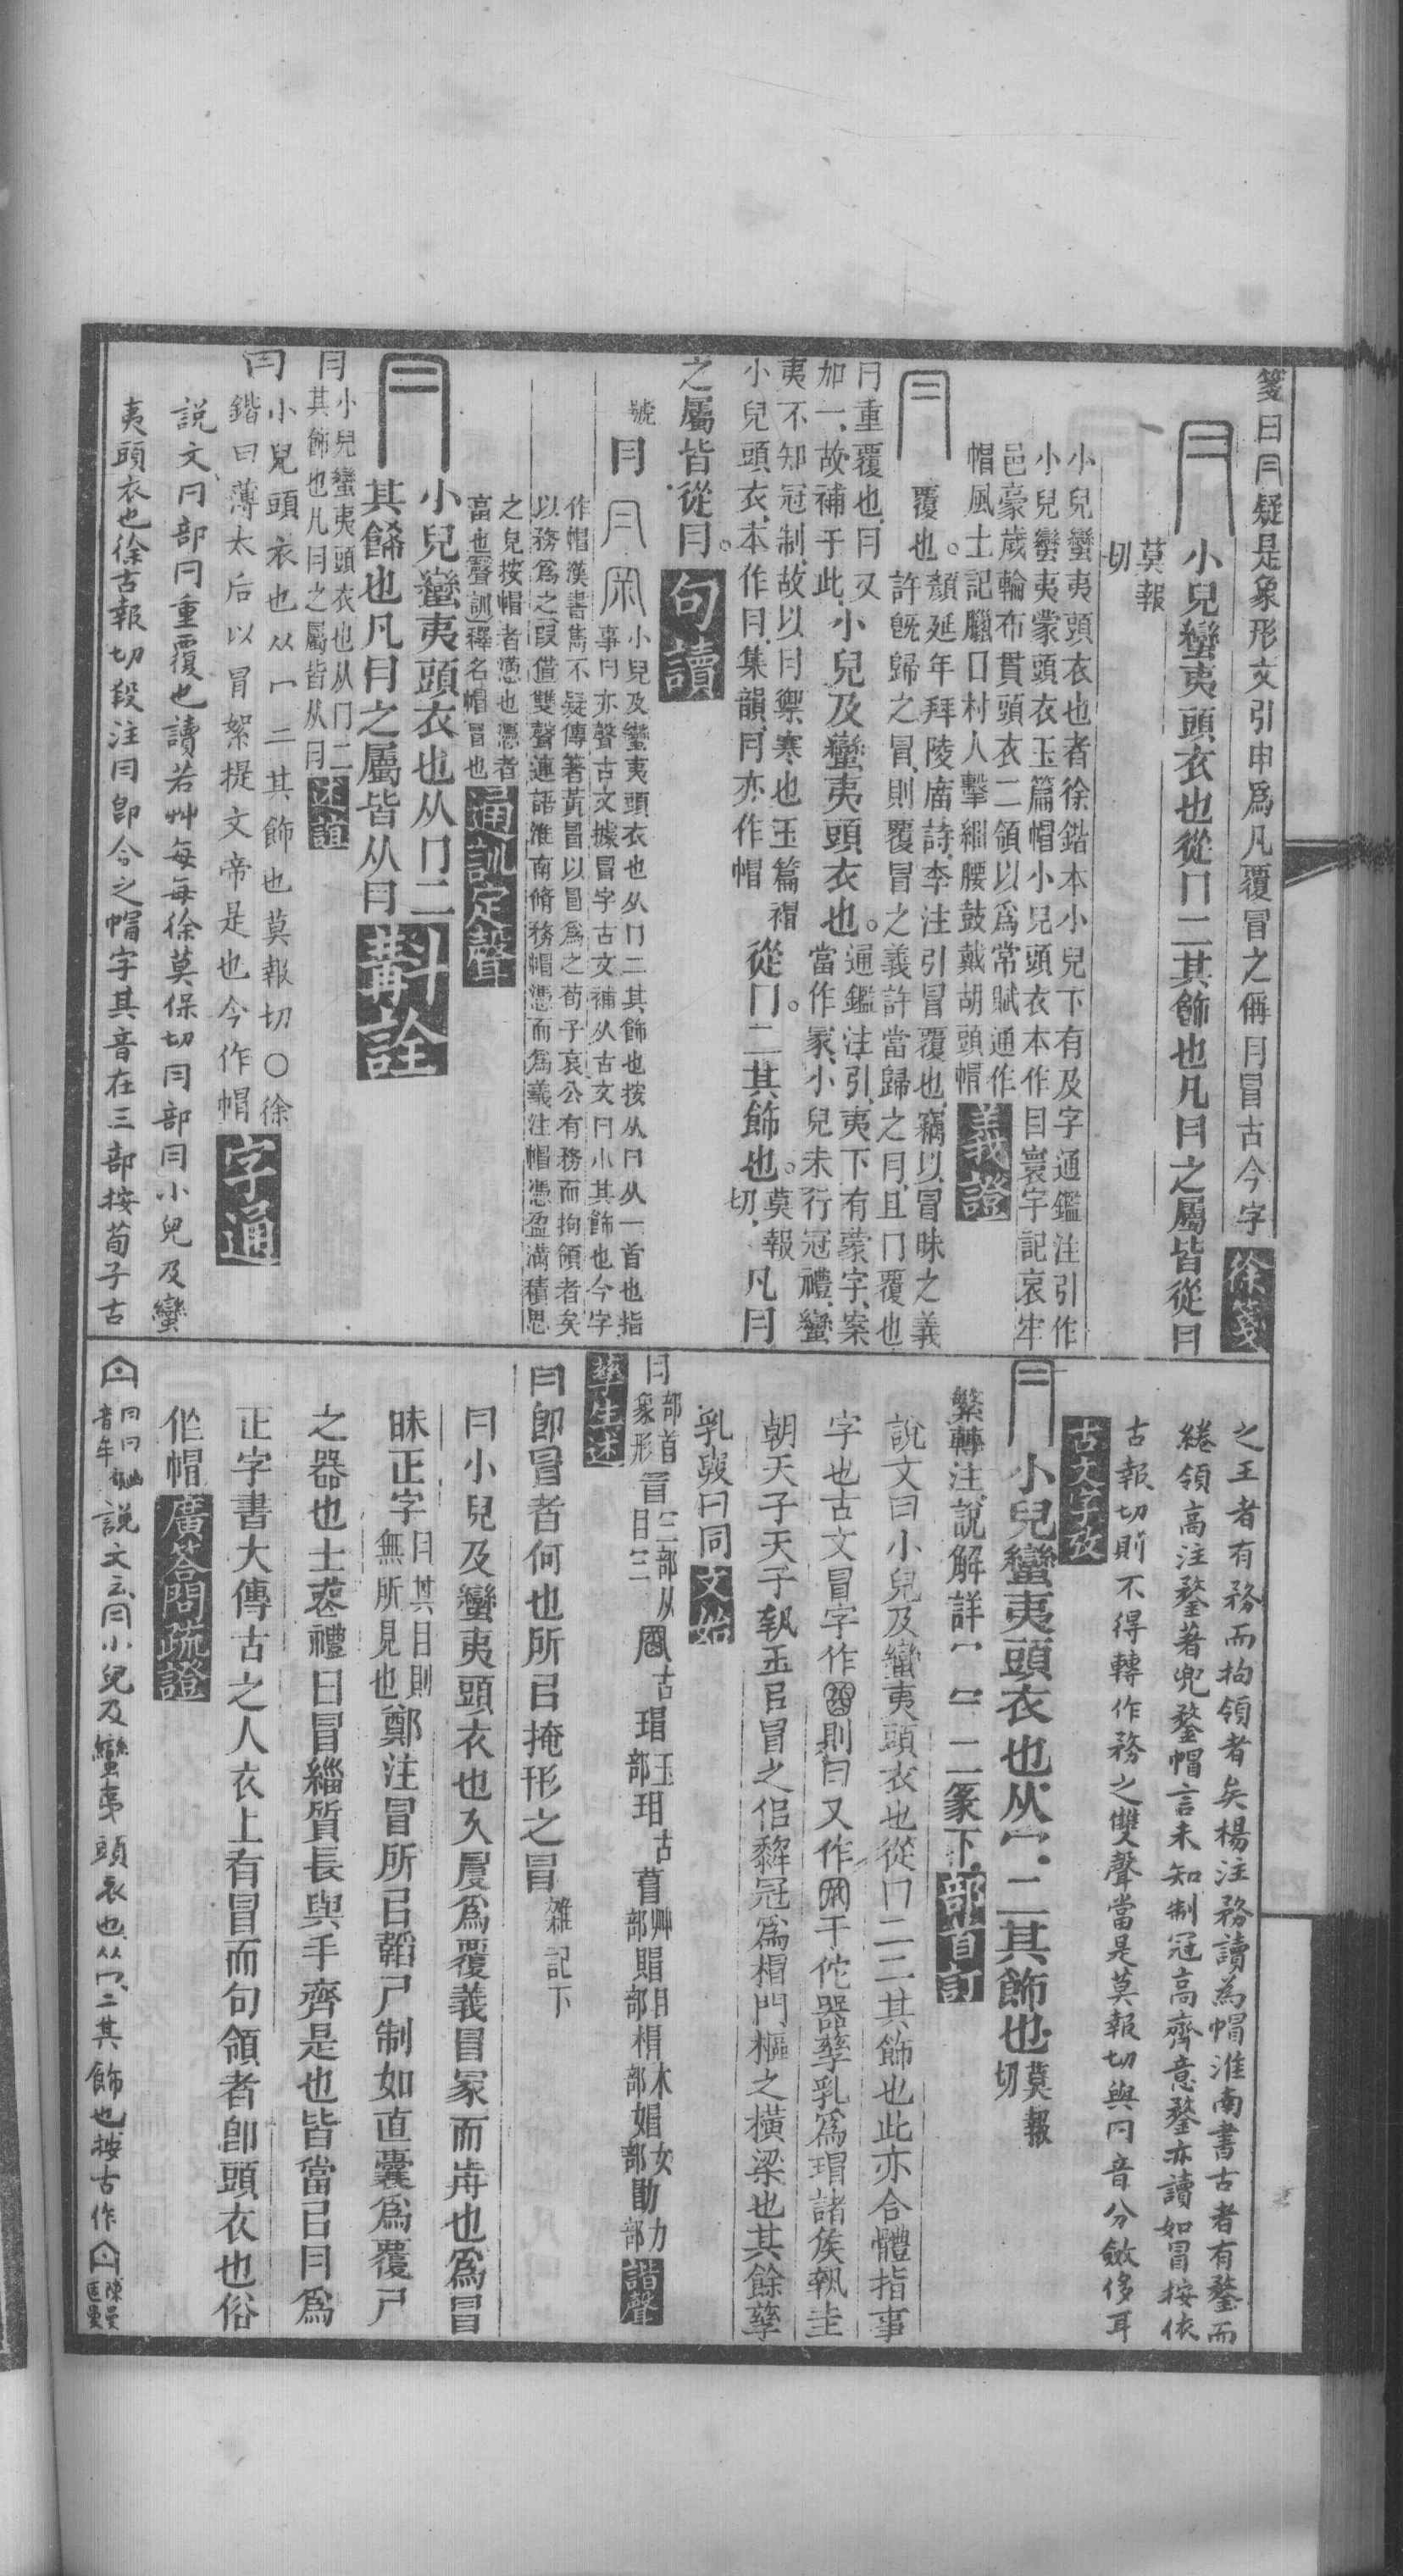 箋曰冃疑是象形文引申爲凡覆冒之偁冃冒古今字 徐箋
小兒蠻夷頭衣也從冂二其飾也凡冃之屬皆從冃
莫報切
小兒蠻夷頭衣也者徐鍇本小兒下有及字通鑑注引作
小兒蠻夷蒙頭衣玉篇帽小兒頭衣本作冃寰宇記哀牢
邑豪歲輪布貫頭衣二領以爲常賦通作
帽風土記臘日村人擊細腰鼓戴胡頭帽 義證
覆也。顏延年拜陵廟詩李注引冒覆也竊以冒昧之義
許旣歸之冒則覆冒之義許當歸之冃且冂覆也
冃重覆也冃又
加一故補于此小兒及蠻夷頭衣也。通鑑注引夷下有蒙字案
當作冡小兒未行冠禮蠻
夷不知冠制故以冃禦寒也玉篇
小兒頭衣本作冃集韻冃亦作帽 從冂。二其飾也。莫報切 凡冃
之屬皆從冃。 句讀
號 冃
小兒及蠻夷頭衣也从冂二其飾也按从冃从一首也指
事冃亦聲古文據冒字古文補从古文冃小其飾也今字
作帽漢書雋不疑傳著黃冒以冒爲之荀子哀公有務而拘領者矣
以務爲之叚借雙聲連語淮南脩務帽憑而爲義注帽憑盈滿積思
之兒按帽者懣也憑者
畐也聲訓釋名帽冒也 通訓定聲
小兒蠻夷頭衣也从冂二
其飾也凡冃之屬皆从冃 斠詮
冃 小兒蠻夷頭衣也从冂二
其飾也凡冃之屬皆从冃 述誼
冃 小兒頭衣也从冖二其飾也莫報切〇徐
鍇曰薄太后以冒絮提文帝是也今作帽 字通
說文冃部冃重覆也讀若艸每每徐莫保切冃部冃小兒及蠻
夷頭衣也徐古報切段注冃卽今之帽字其音在三部按荀子古
之王者有務而拘領者矣楊注務讀為帽淮南書古者有鍪而
綣領高注鍪著兜鍪帽言未知制冠高齊意鍪亦讀如冒按依
古報切則不得轉作務之雙聲當是莫報切與冃音分斂侈耳
古文字攷
小兒蠻夷頭衣也从冖二其飾也 莫報切
繫轉注說解詳冖冖二篆下 部首訂
說文曰小兒及蠻夷頭衣也從冂二二其飾也此亦合體指事
字也古文冒字作則冃又作干佗器孳乳爲瑁諸矦執圭
朝天子天子執玉㠯冒之佀犂冠爲楣門樞之橫梁也其餘孳
乳與冃同 文始
冃 部首象形 冒 古 瑁 玉部 玥 古 萺 艸部 賵 目部 楣 木部 媢 女部 勖 力部 諧聲
孳生述
冃卽冒者何也所㠯掩形之冒 雜記下
冃小兒及蠻夷頭衣也久叚爲覆義冒冡而歬也爲冒
昧正字 冃其目則無所見也 鄭注冒所㠯韜尸制如直囊爲覆尸
之器也士喪禮曰冒緇質長與手齊是也皆當㠯冃爲
正字書大傳古之人衣上有冒而句領者卽頭衣也俗
作帽 廣答問疏證
說文云冃小兒及蠻夷頭衣也从冖二其飾也按古作